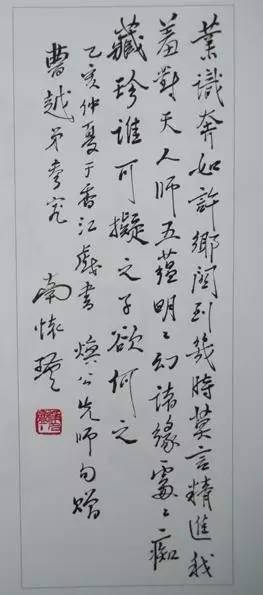 業識奔如許鄉關到幾時莫言精進我
羞對天人師五蘊明〻幻諸緣處〻痴
藏珍誰可擬之子欲何之
乙亥仲夏于香江戲書 煥公先師句贈
曹越弟存究
南懷瑾